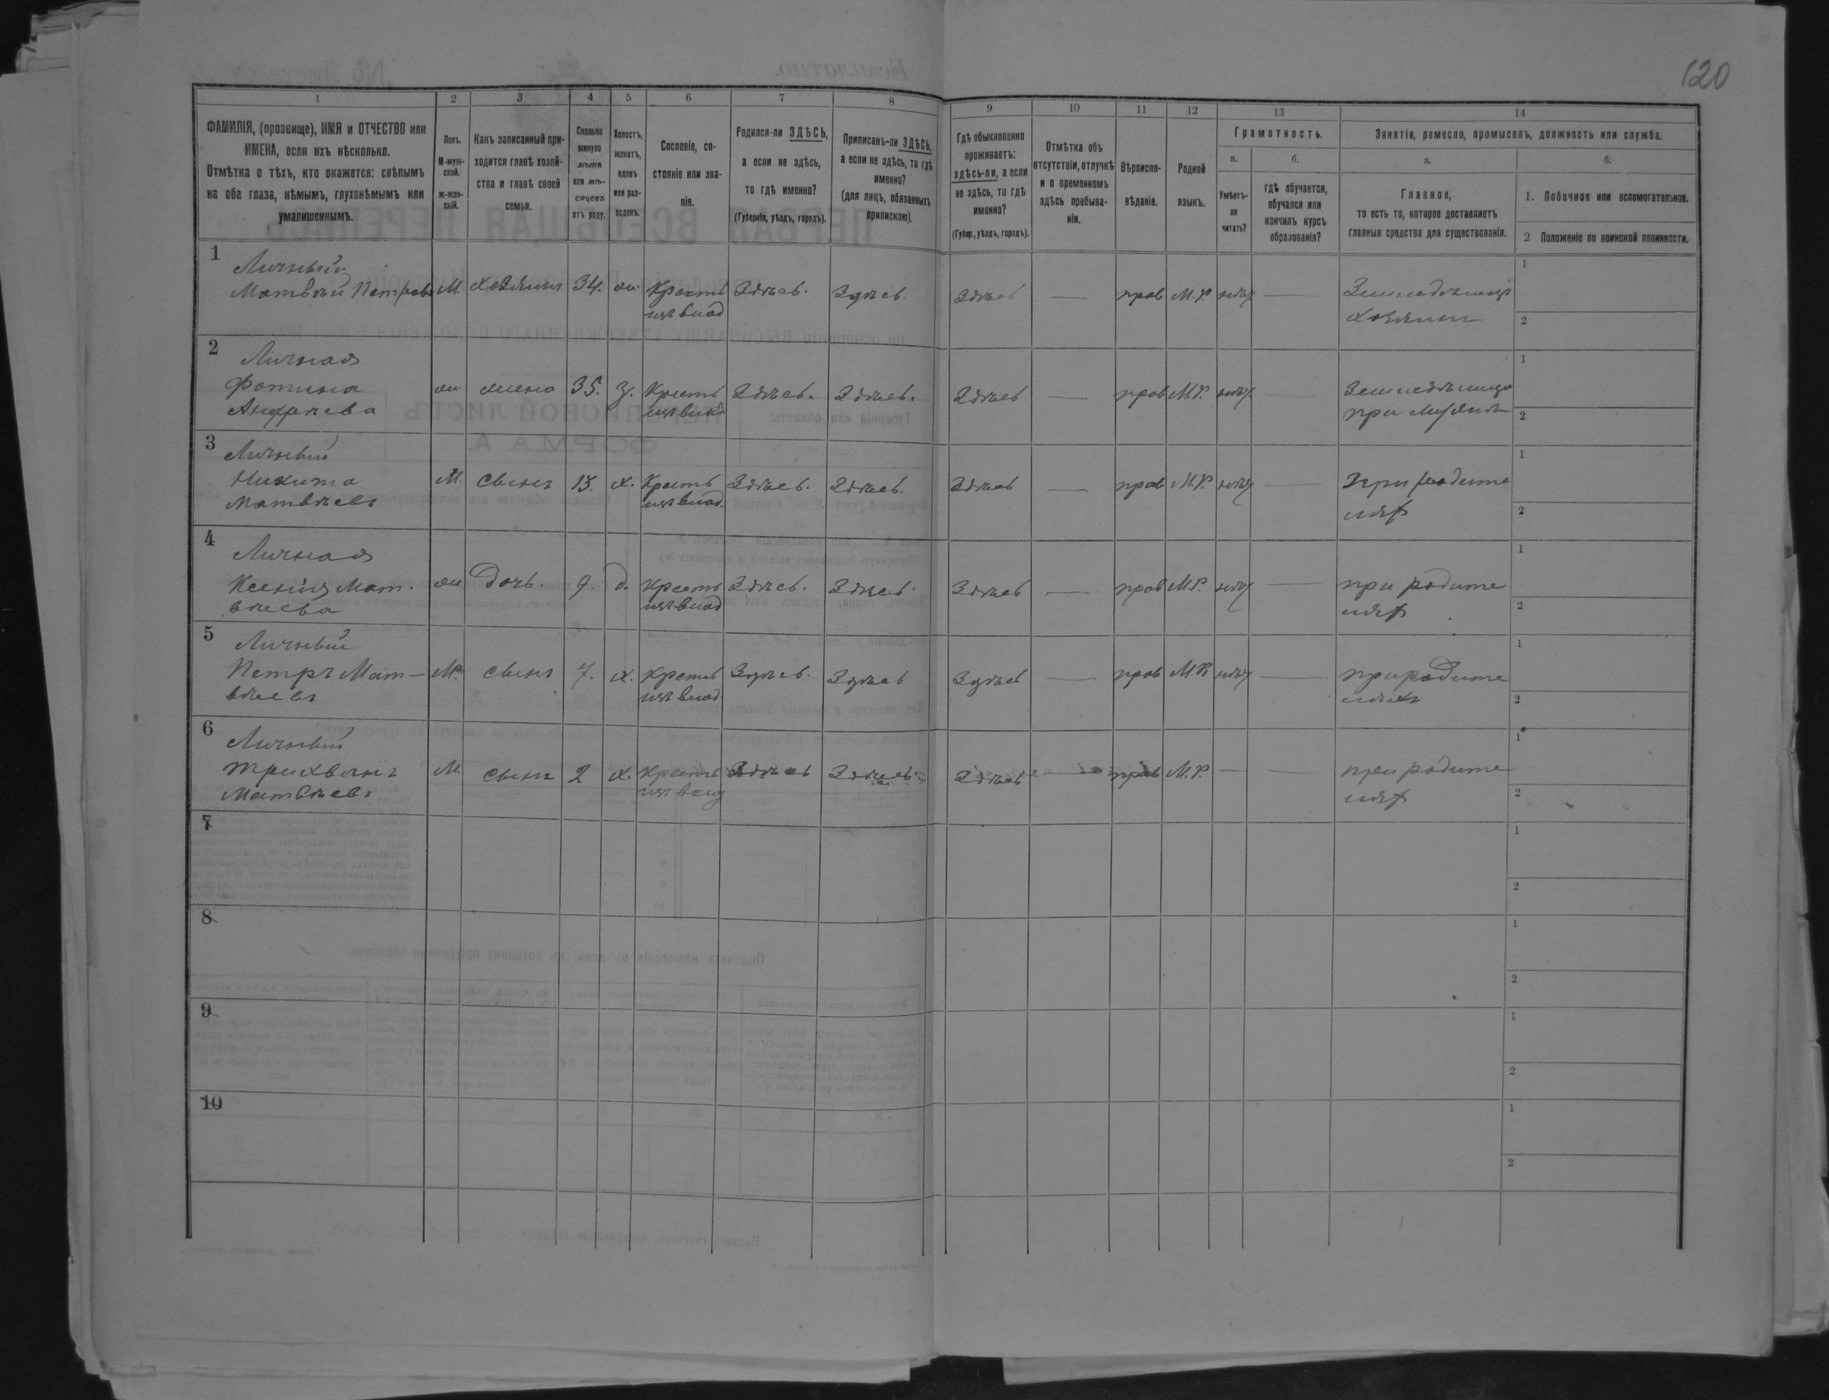 120
1 2 3 4 5 6 7 8 9 10 11 12 13 14
ФАМИЛІЯ, (прозвище), ИМЯ и ОТЧЕСТВО или ИМЕНА, если ихъ нѣсколько.
Отмѣтка о тѣхъ, кто окажется: слѣпымъ на оба глаза, нѣмымъ, глухонѣмымъ или умалишеннымъ.
Полъ. М-мужской. Ж-женскій.
Какъ записанный приходится главѣ хозяйства и главѣ своей семьи.
Сколько минуло лѣтъ или мѣсяцевъ отъ роду.
Холостъ, женатъ, вдовъ или разведенъ.
Сословіе, состояніе или званіе.
Родился-ли ЗДѢСЬ, а если не здѣсь, то гдѣ именно?
(Губернія, уѣздъ, городъ).
Приписанъ-ли ЗДѢСЬ, а если не здѣсь, то гдѣ именно?
(для лицъ, обязанныхъ припискою).
Гдѣ обыкновенно проживаетъ: здѣсь-ли, а если не здѣсь, то гдѣ именно?
(Губер., уѣздъ, городъ).
Отмѣтка объ отсутствіи, отлучкѣ и о временномъ здѣсь пребываніи.
Вѣроисповѣданіе.
Родной языкъ.
Грамотность.
а. Умѣетъ-ли читать?
б. гдѣ обучается, обучался или кончилъ курсъ образованія?
Занятія, ремесло, промыселъ, должность или служба.
а. Главное, то есть то, которое доставляетъ главныя средства для существованія.
б. 1. Побочное или вспомогательное.
2 Положеніе по воинской повинности.
1 Личный
Матвѣй Петровъ М. хозяинъ 34. ж. Крестъ Здѣсь. Здѣсь. Здѣсь — прав М.Р. нѣтъ — Земледѣлецъ
изъ влад хозяинъ
2 Личная
Фотина ж жена 35. З. Крестъ Здѣсь. Здѣсь. Здѣсь — прав М.Р. нѣтъ Земледѣлица
Андреева изъ влад при мужѣ
3 Личный
Никита М. сынъ 13. х. Крестъ Здѣсь. Здѣсь. Здѣсь — прав М.Р. нѣтъ — При родите
Матвѣевъ изъ влад ляхъ
4 Личная
Ксенія Мат. ж Дочь. 9 д. Крестъ Здѣсь. Здѣсь. Здѣсь — прав М.Р. нѣтъ — при родите
вѣева изъ влад ляхъ
5 Личный
Петръ Мат- М. сынъ 7. х. Крестъ Здѣсь. Здѣсь Здѣсь — прав М.Р. нѣтъ — при родите
вѣевъ изъ влад ляхъ
6 Личный
Трихванъ М. сынъ 2 х. Крестъ Здѣсь Здѣсь Здѣсь — прав М.Р. — — при родите
Матвѣевъ изъ влад ляхъ
7
8
9
10